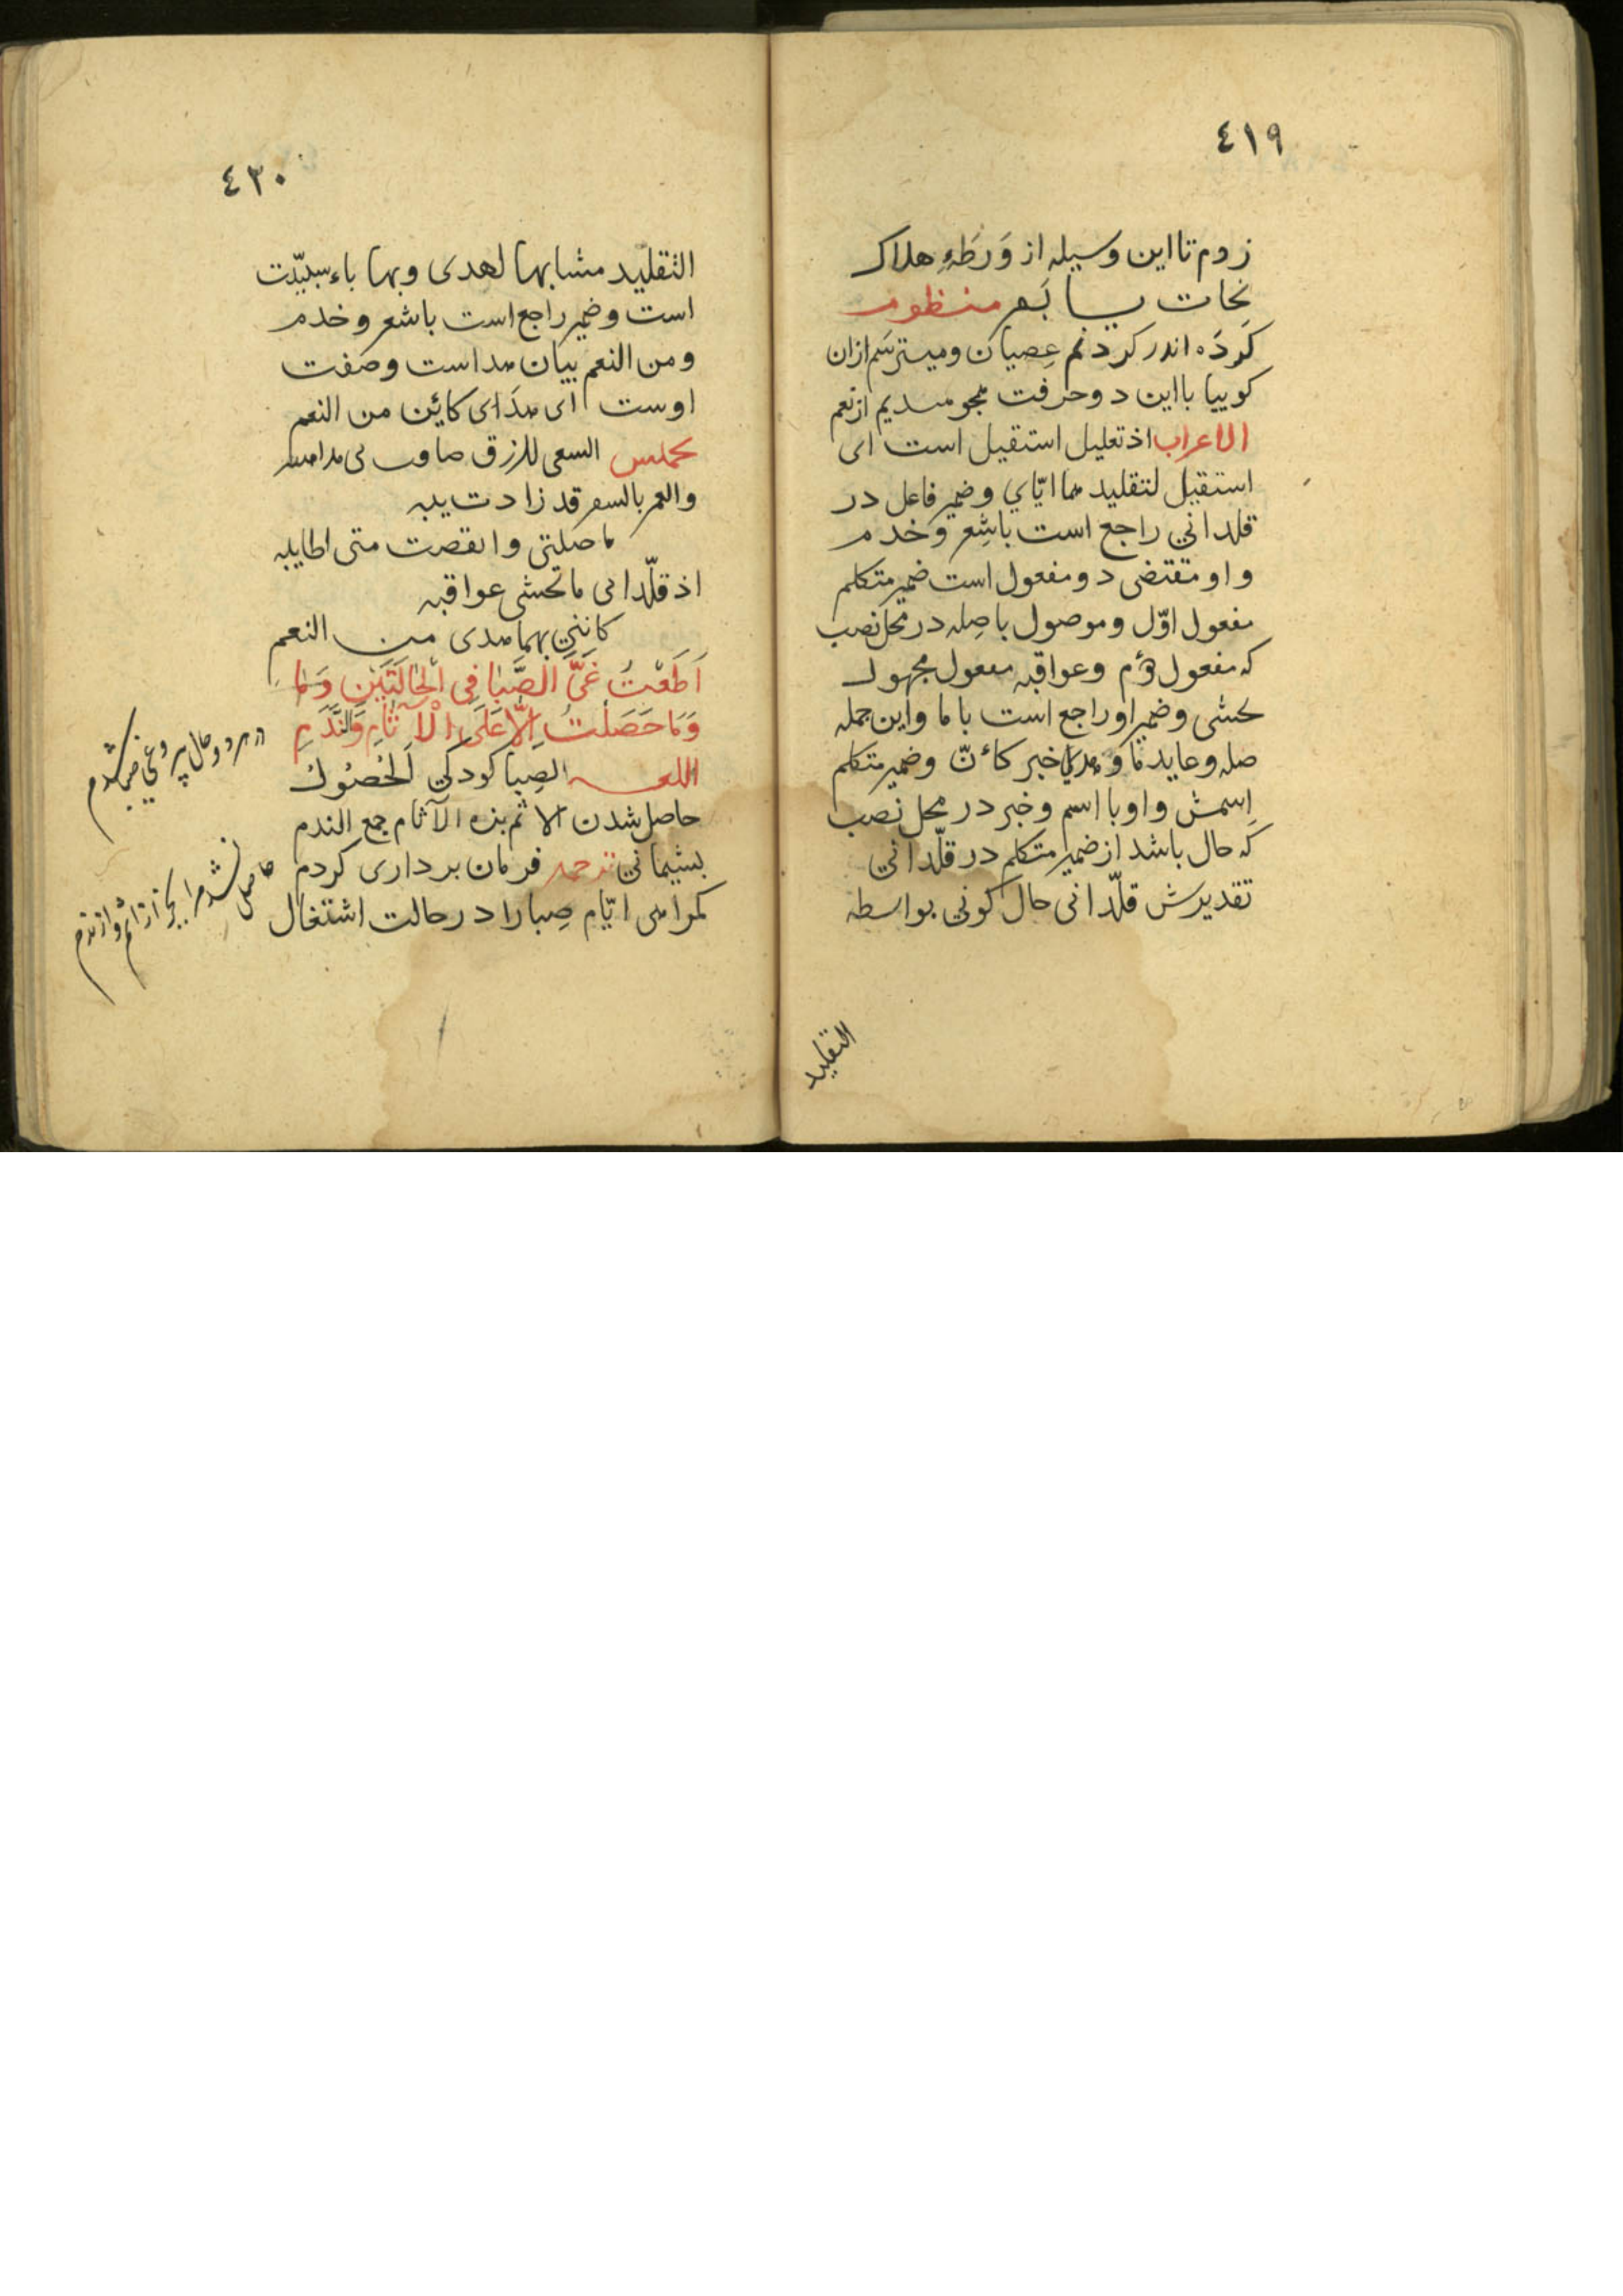 ٤١٩
زدم تا این وسیله از وَرطَهٔ هلاک
نجات یابم منظوم
کرده اند در کردنم عصیان و میترسم ازان
کوییا با این دو حرفت همچو هدیم از نعم
الاعراب اذ تعلیل استقیل است ای
استقیل لتقلید هما ایّای و ضمیر فاعل در
قلدانی راجع است باشِعر و خدم
و او مقتضی دو مفعول است ضمیر متکلم
مفعول اوّل و موصول با صِله در محل نصب
که مفعول دوم و عواقبه مفعول مجهول
تخشی و ضمیر او راجع است با ما و این جمله
صله و عاید ما و هدی خبر کأنّ و ضمیر متکلم
اِسمش و او با اسم و خبر در محل نصب
که حال باشد از ضمیر متکلم در قلّدانی
تقدیرش قلّدانی حال کونی بواسطه
التقلید
٤٣٠
التقلید مشابها لهدی و بهما باء سببیّت
است و ضمیر راجع است باشعر و خدم
و من النعم بیان هدا است و صفت
اوست ای هدَای کایٔن من النعم
السعی للرزق
والعمر بالسفر قد زادت
ما حصلتی وانقصت متی اطایبه
اذ قلّدانی ما تخشی عواقبه
کانّنی بهما هدی من النعم
اَطَعْتُ غَیَّ الصَّبَا فِی الْحَالَتَیْنِ وَمَا
وَمَا حَصَلْتُ اِلَّا عَلَی الْآثَامِ وَالنَّدَمِ
اللغه الصِبا کودکی اَلْحُصُولُ
حاصل شدن الاثم بزه الآثام جمع الندم
پشیمانی ترجمه فرمان برداری کردم
کمراهی ایّام صِبا را در حالت اشتغال
در هر دو حال پیرو غی صبا شدم
حاصل نشد مرا بجز از اثم و از ندم